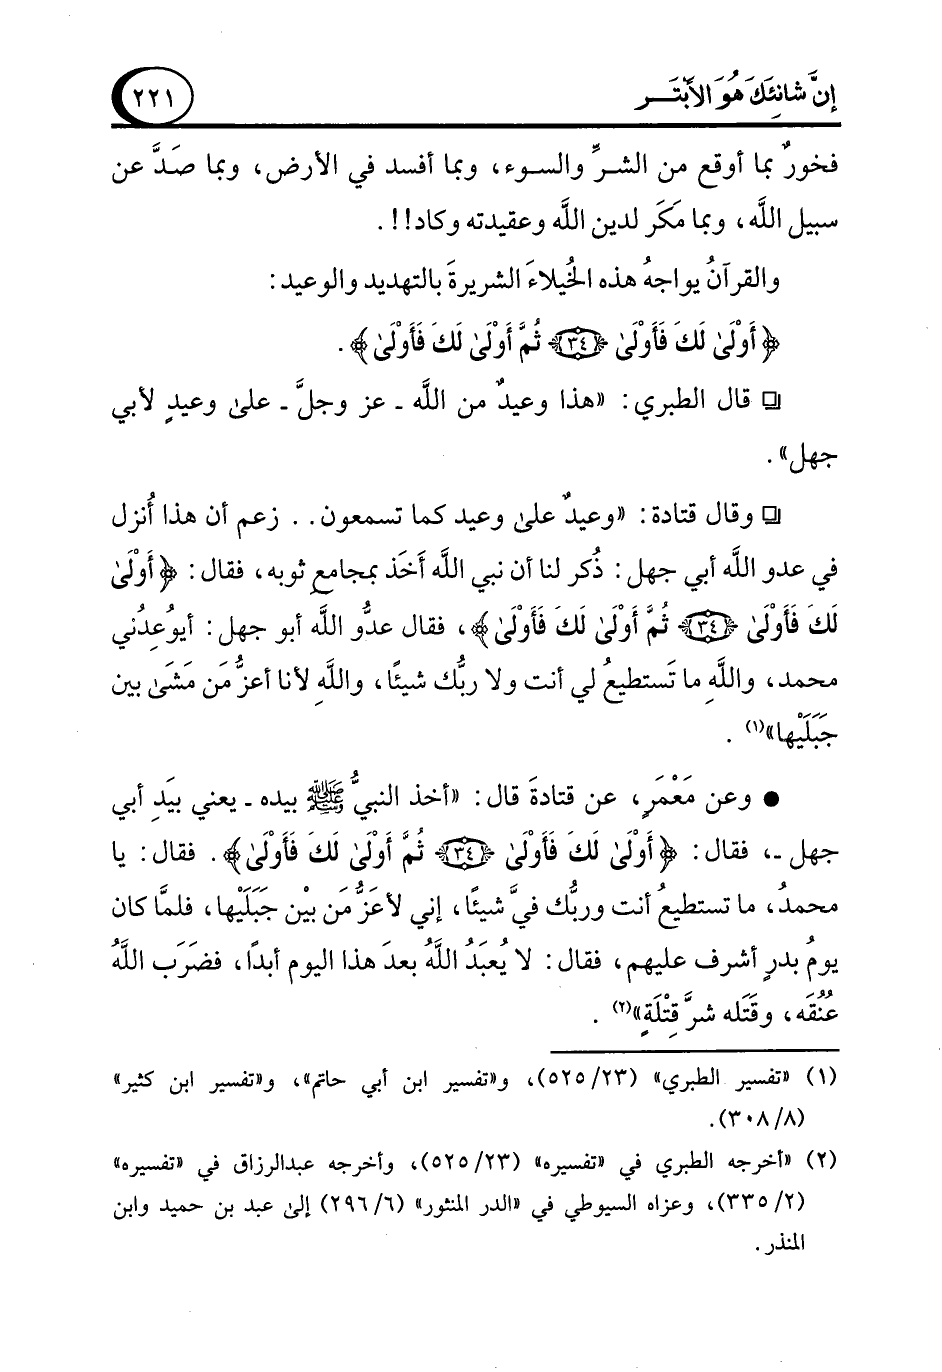 إنَّ شانِئَكَ هُوَ الأبْتَـــر
٢٢١
فخورٌ بما أوقع من الشـرِّ والسـوء، وبما أفسد في الأرض، وبما صَدَّ عن
سبيل اللَّه، وبما مَكَر لدين اللَّه وعقيدته وكاد!!.
والقرآنُ يواجهُ هذه الخُيلاءَ الشريرةَ بالتهديد والوعيد:
﴿أَوْلَىٰ لَكَ فَأَوْلَىٰ ﴿٣٤﴾ ثُمَّ أَوْلَىٰ لَكَ فَأَوْلَىٰ﴾.
❏ قال الطبري: «هذا وعيدٌ من اللَّه ـ عز وجلَّ ـ علىٰ وعيدٍ لأبي
جهل».
❏ وقال قتادة: «وعيدٌ علىٰ وعيد كما تسمعون.. زعم أن هذا أُنزل
في عدو اللَّه أبي جهل: ذُكر لنا أن نبي اللَّه أخَذ بمجامعِ ثوبه، فقال: ﴿أَوْلَىٰ
لَكَ فَأَوْلَىٰ ﴿٣٤﴾ ثُمَّ أَوْلَىٰ لَكَ فَأَوْلَىٰ﴾، فقال عدوُّ اللَّه أبو جهل: أيوُعِدُني
محمد، واللَّهِ ما تَستطيعُ لي أنت ولا ربُّك شيئًا، واللَّهِ لأنا أعزُّ مَن مَشَىٰ بين
جَبَلَيْها»(١) .
● وعن مَعْمَرٍ، عن قتادةَ قال: «أخذ النبيُّ ﷺ بيده ـ يعني بيَدِ أبي
جهل ـ، فقال: ﴿أَوْلَىٰ لَكَ فَأَوْلَىٰ ﴿٣٤﴾ ثُمَّ أَوْلَىٰ لَكَ فَأَوْلَىٰ﴾. فقال: يا
محمدُ، ما تستطيعُ أنت وربُّك فيَّ شيئًا، إني لأعَزُّ مَن بيْن جَبَلَيْها، فلمَّا كان
يومُ بدرٍ أشرف عليهم، فقال: لا يُعبَدُ اللَّهُ بعدَ هذا اليوم أبدًا، فضَرَب اللَّهُ
عُنُقَه، وقَتَله شرَّ قِتْلَةٍ»(٢) .
(١) «تفسير الطبري» (٢٣/ ٥٢٥)، و«تفسير ابن أبي حاتم»، و«تفسير ابن كثير»
(٨/ ٣٠٨).
(٢) «أخرجه الطبري في «تفسيره» (٢٣/ ٥٢٥)، وأخرجه عبدالرزاق في «تفسيره»
(٢/ ٣٣٥)، وعزاه السيوطي في «الدر المنثور» (٦/ ٢٩٦) إلىٰ عبد بن حميد وابن
المنذر.